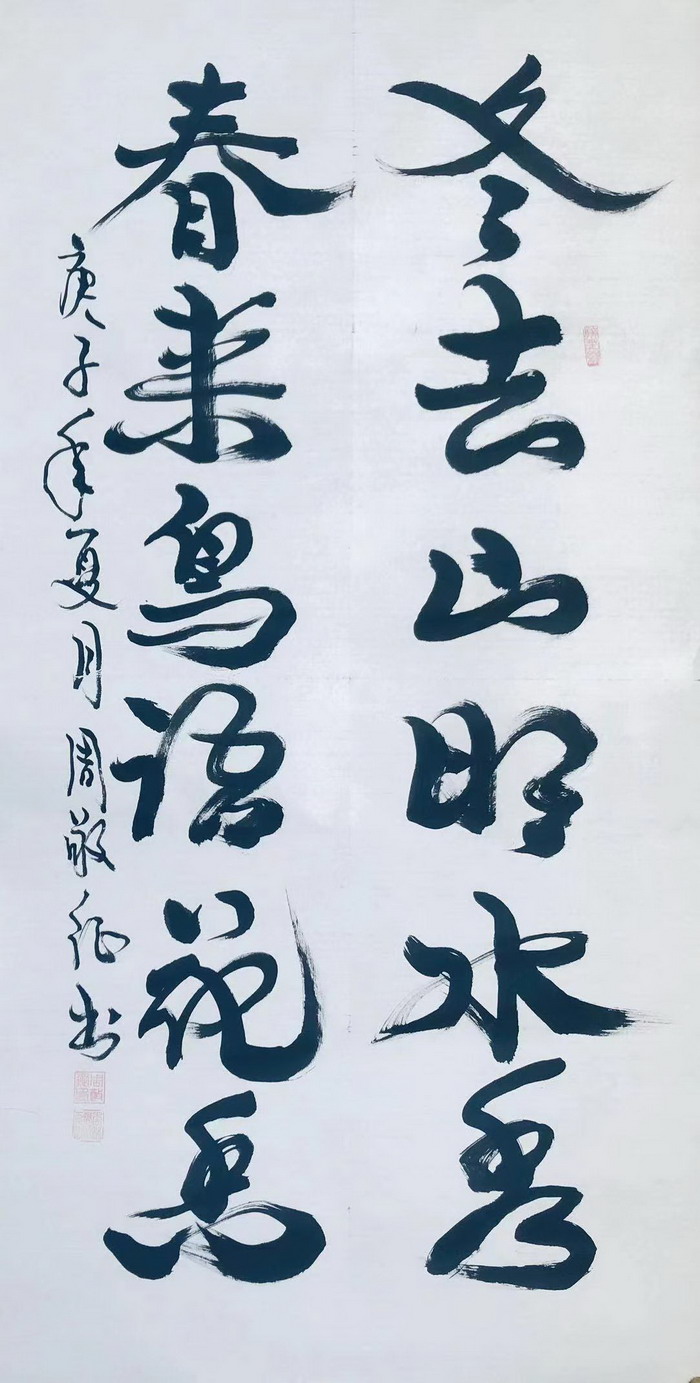 冬去山明水秀
春来鸟语花香
庚子年夏月周敬征书